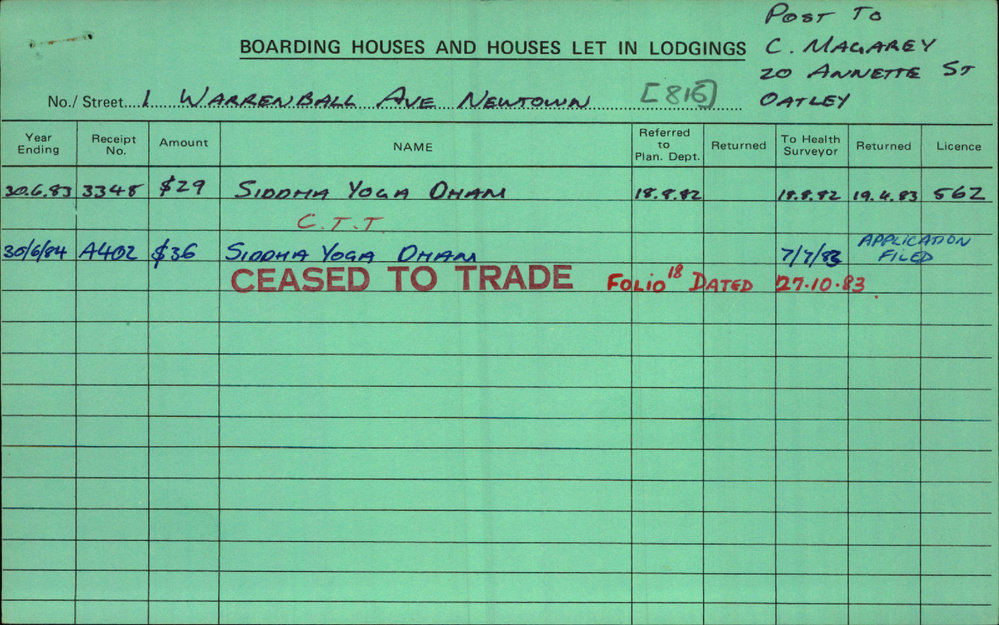 POST TO
BOARDING HOUSES AND HOUSES LET IN LODGINGS C. MAGAREY
20 ANNETTE ST
No./ Street 1 WARRENBALL AVE NEWTOWN [816] OATLEY
Year Ending Receipt No. Amount NAME Referred to Plan. Dept. Returned To Health Surveyor Returned Licence
30.6.83 3348 $29 SIDDHA YOGA DHAM 18.8.82 18.8.82 19.4.83 562
C.T.T
30/6/84 A402 $36 SIDDHA YOGA DHAM 7/7/83 APPLICATION FILED
CEASED TO TRADE FOLIO 18 DATED 27.10.83.